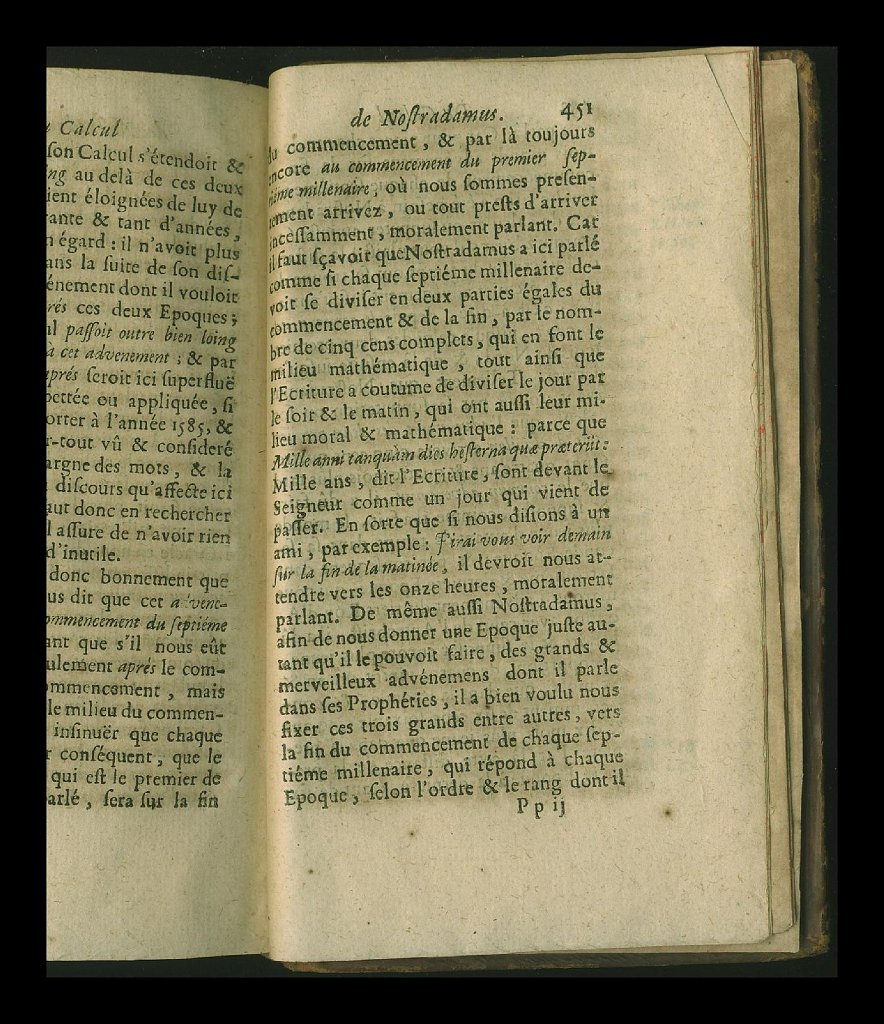 Calcul
ſon Calcul s'étendoit &
ng au delà de ces deux
ient éloignées de luy de
rante & tant d'années,
n égard : il n'avoit plus
ans la ſuite de ſon diſ-
énement dont il vouloit
rés ces deux Epoques ;
il paſſoit outre bien loing
a cet advenement ; & par
aprés ſeroit ici ſuperfluë
pettée ou appliquée, ſi
orter à l'année 1585, &
r-tout vû & conſideré
argne des mots, & la
diſcours qu'affecte ici
aut donc en rechercher
l aſſure de n'avoir rien
d'inutile.
donc bonnement que
us dit que cet advene-
ommencement du ſeptiéme
ant que s'il nous eût
ulement aprés le com-
ommencement, mais
le milieu du commen-
inſinuër que chaque
r conſéquent, que le
qui eſt le premier de
arlé, ſera ſur la fin
de Noſtradamus. 451
du commencement, & par là toujours
encore au commencement du premier ſep-
tiéme millenaire, où nous ſommes preſen-
tement arrivez, ou tout preſts d'arriver
inceſſamment, moralement parlant. Car
il faut ſçavoir que Noſtradamus a ici parlé
comme ſi chaque ſeptiéme millenaire de-
voit ſe diviſer en deux parties égales du
commencement & de la fin, par le nom-
bre de cinq cens complets, qui en font le
milieu mathématique, tout ainſi que
l'Ecriture a coutume de diviſer le jour par
le ſoir & le matin, qui ont auſſi leur mi-
lieu moral & mathématique : parce que
Mille anni tanquàm dies heſterna quæ præteriit :
Mille ans, dit l'Ecriture, ſont devant le
Seigneur comme un jour qui vient de
paſſer. En ſorte que ſi nous diſions à un
ami, par exemple : J'irai vous voir demain
ſur la fin de la matinée, il devroit nous at-
tendre vers les onze heures, moralement
parlant. De même auſſi Noſtradamus,
afin de nous donner une Epoque juſte au-
tant qu'il le pouvoit faire, des grands &
merveilleux advénemens dont il parle
dans ſes Prophéties, il a bien voulu nous
fixer ces trois grands entre autres, vers
la fin du commencement de chaque ſep-
tiéme millenaire, qui répond à chaque
Epoque, ſelon l'ordre & le rang dont il
P p ij